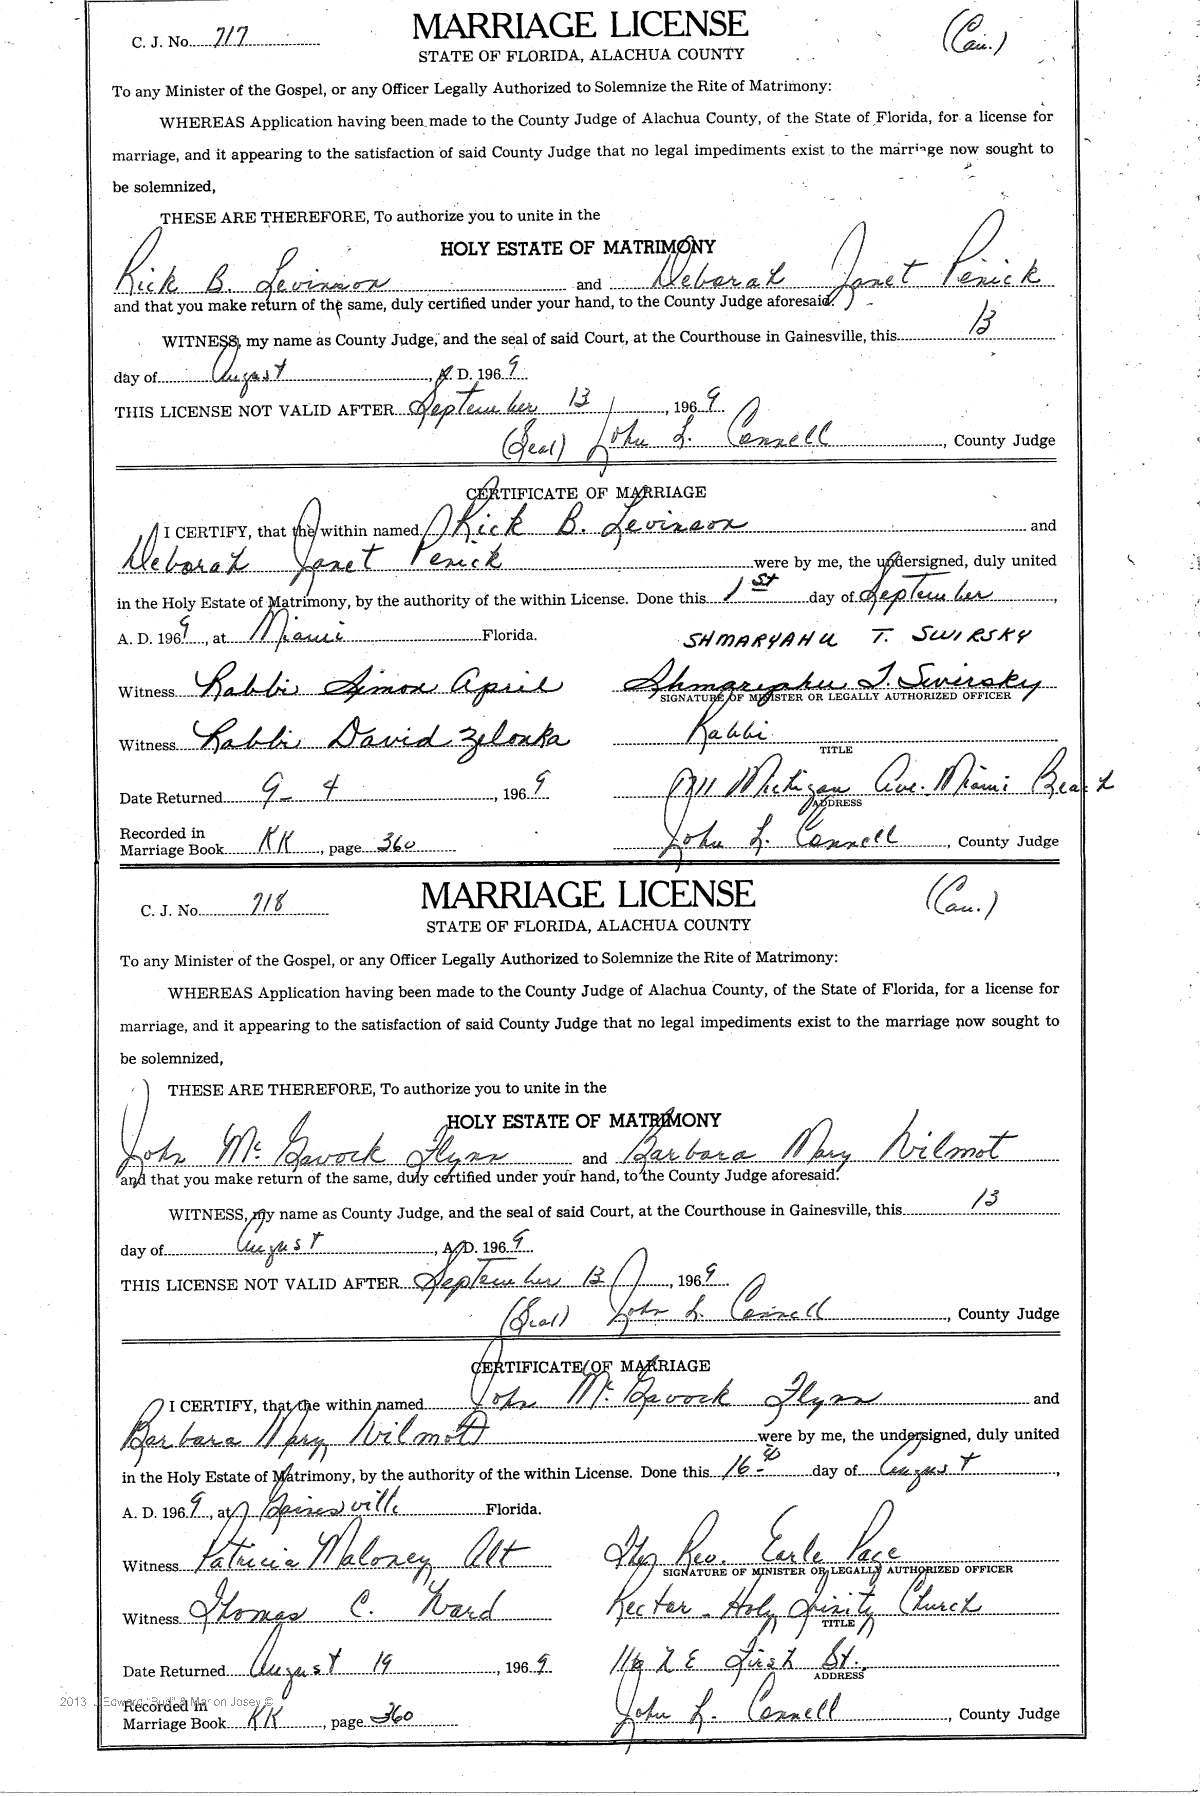 C. J. No. 717
MARRIAGE LICENSE
(Cau.)
STATE OF FLORIDA, ALACHUA COUNTY
To any Minister of the Gospel, or any Officer Legally Authorized to Solemnize the Rite of Matrimony:
WHEREAS Application having been made to the County Judge of Alachua County, of the State of Florida, for a license for
marriage, and it appearing to the satisfaction of said County Judge that no legal impediments exist to the marriage now sought to
be solemnized,
THESE ARE THEREFORE, To authorize you to unite in the
HOLY ESTATE OF MATRIMONY
Rick B. Levinson and Deborah Janet Penick
and that you make return of the same, duly certified under your hand, to the County Judge aforesaid.
WITNESS, my name as County Judge, and the seal of said Court, at the Courthouse in Gainesville, this 13
day of August, A. D. 1969.
THIS LICENSE NOT VALID AFTER September 13, 1969.
(Seal) John L. Connell, County Judge
CERTIFICATE OF MARRIAGE
I CERTIFY, that the within named Rick B. Levinson and
Deborah Janet Penick were by me, the undersigned, duly united
in the Holy Estate of Matrimony, by the authority of the within License. Done this 1st day of September,
A. D. 1969, at Miami Florida.
SHMARYAHU T. SWIRSKY
Witness Rabbi Simon April Shmaryahu T. Swirsky
SIGNATURE OF MINISTER OR LEGALLY AUTHORIZED OFFICER
Witness Rabbi David Zelonka Rabbi
TITLE
Date Returned 9-4, 1969 1711 Michigan Ave. Miami Beach
ADDRESS
Recorded in
Marriage Book KK, page 360 John L. Connell, County Judge
C. J. No. 718
MARRIAGE LICENSE
(Cau.)
STATE OF FLORIDA, ALACHUA COUNTY
To any Minister of the Gospel, or any Officer Legally Authorized to Solemnize the Rite of Matrimony:
WHEREAS Application having been made to the County Judge of Alachua County, of the State of Florida, for a license for
marriage, and it appearing to the satisfaction of said County Judge that no legal impediments exist to the marriage now sought to
be solemnized,
THESE ARE THEREFORE, To authorize you to unite in the
HOLY ESTATE OF MATRIMONY
John McGavock Flynn and Barbara Mary Wilmot
and that you make return of the same, duly certified under your hand, to the County Judge aforesaid.
WITNESS, my name as County Judge, and the seal of said Court, at the Courthouse in Gainesville, this 13
day of August, A. D. 1969.
THIS LICENSE NOT VALID AFTER September 13, 1969.
(Seal) John L. Connell, County Judge
CERTIFICATE OF MARRIAGE
I CERTIFY, that the within named John McGavock Flynn and
Barbara Mary Wilmot were by me, the undersigned, duly united
in the Holy Estate of Matrimony, by the authority of the within License. Done this 16th day of August,
A. D. 1969, at Gainesville Florida.
Witness Patricia Maloney Alt The Rev. Earle Page
SIGNATURE OF MINISTER OR LEGALLY AUTHORIZED OFFICER
Witness Thomas C. Ward Rector - Holy Trinity Church
TITLE
Date Returned August 19, 1969 116 N E First St.
ADDRESS
2013 J Edward "Bud" & Marion Josey ©
Recorded in
Marriage Book KK, page 360 John L. Connell, County Judge